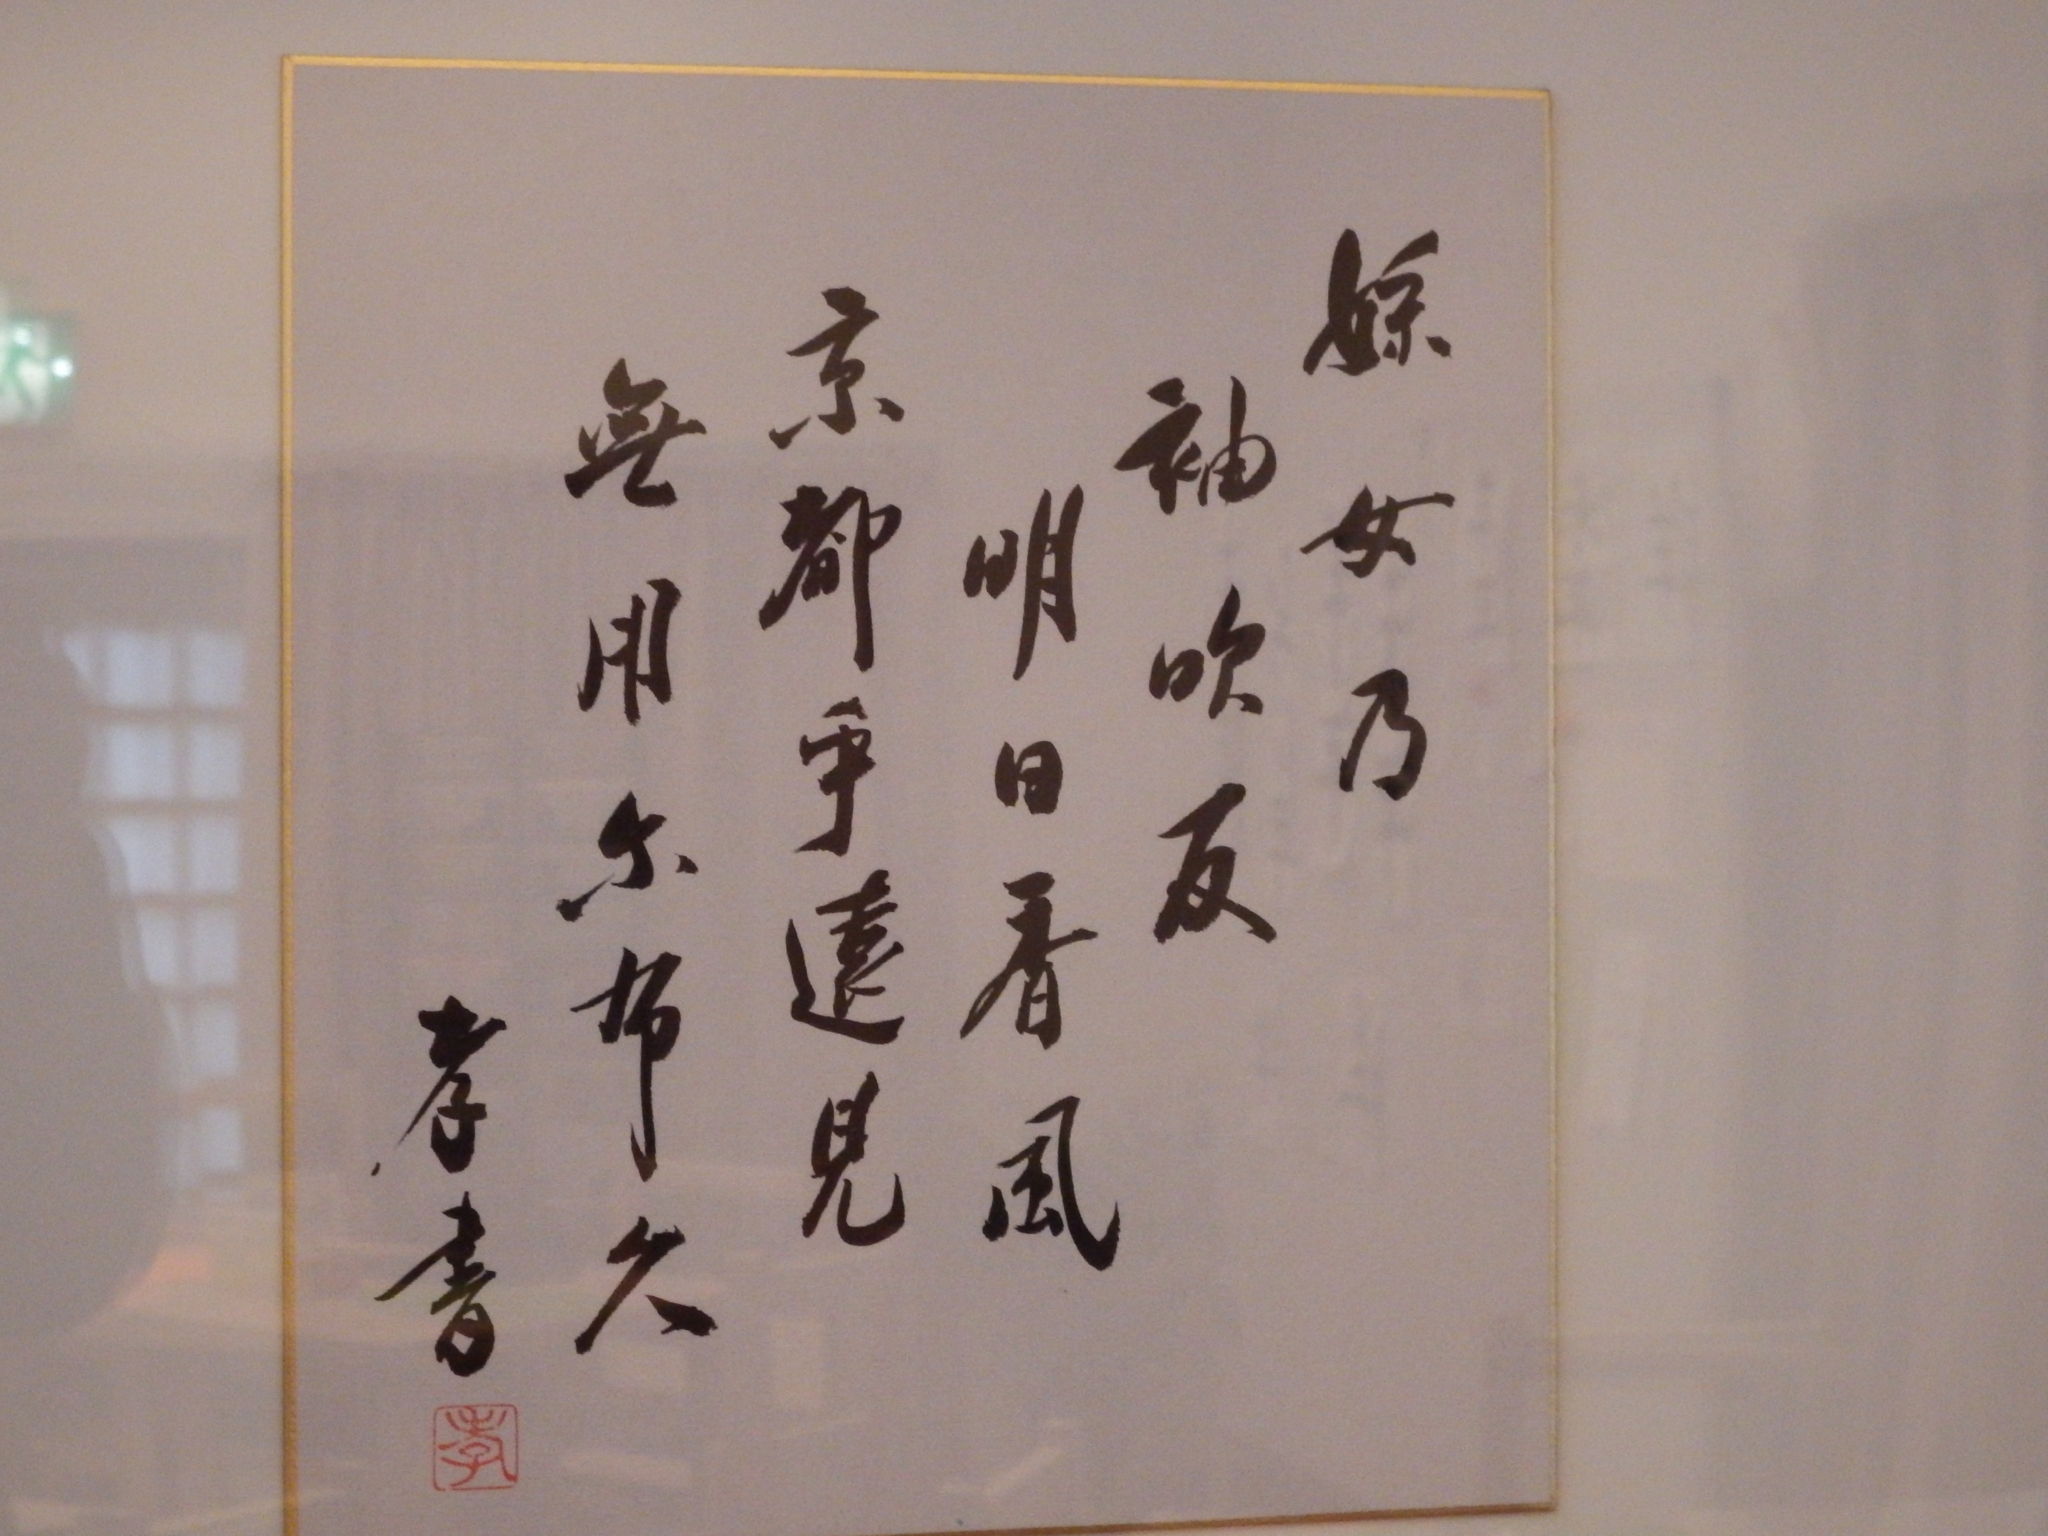 婇女乃
袖吹反
明日香風
京都乎遠見
無用尓布久
孝書
孝